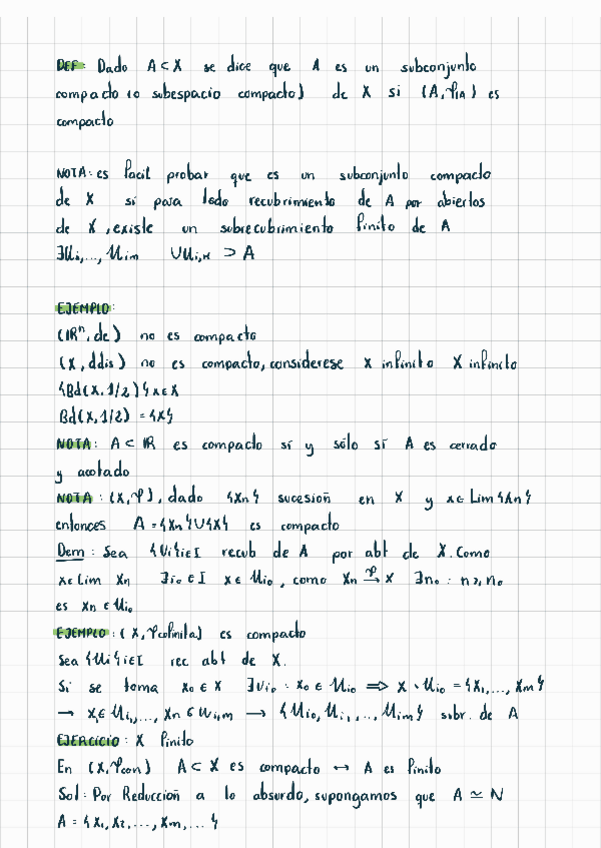 DEF: Dado A ⊂ X se dice que A es un subconjunto
compacto (o subespacio compacto) de X si (A, 𝒯|A) es
compacto
NOTA: es facil probar que es un subconjunto compacto
de X si para todo recubrimiento de A por abiertos
de X, existe un subrecubrimiento finito de A
∃Ui,..., Uim ∪Ui,κ ⊃ A
EJEMPLO:
(ℝⁿ, de) no es compacto
(X, ddis) no es compacto, considerese X infinito X infinito
{Bd(x, 1/2)}x∈X
Bd(X, 1/2) = {X}
NOTA: A ⊂ ℝ es compacto sí y sólo sí A es cerrado
y acotado
NOTA: (X, 𝒯), dado {Xn} sucesión en X y x∈ Lim {Xn}
entonces A = {Xn}∪{X} es compacto
Dem: Sea {Ui}i∈I recub de A por abt de X. Como
x∈ Lim Xn ∃i₀ ∈ I x∈ Ui₀, como Xn →𝒯 x ∃n₀ : n≥n₀
es Xn ∈ Ui₀
EJEMPLO: (X, 𝒯cofinita) es compacto
Sea {Ui}i∈I rec abt de X.
Si se toma x₀ ∈ X ∃Ui₀ : x₀ ∈ Ui₀ ⟹ X \ Ui₀ = {X₁,..., Xm}
→ X₁∈ Ui₁,..., Xn ∈ Ui,m → {Ui₀, Ui₁,..., Uim} sobr. de A
EJERCICIO: X finito
En (X, 𝒯con) A ⊂ X es compacto ↔ A es finito
Sol: Por Reducción a lo absurdo, supongamos que A ≃ N
A = {X₁, X₂,..., Xm,...}